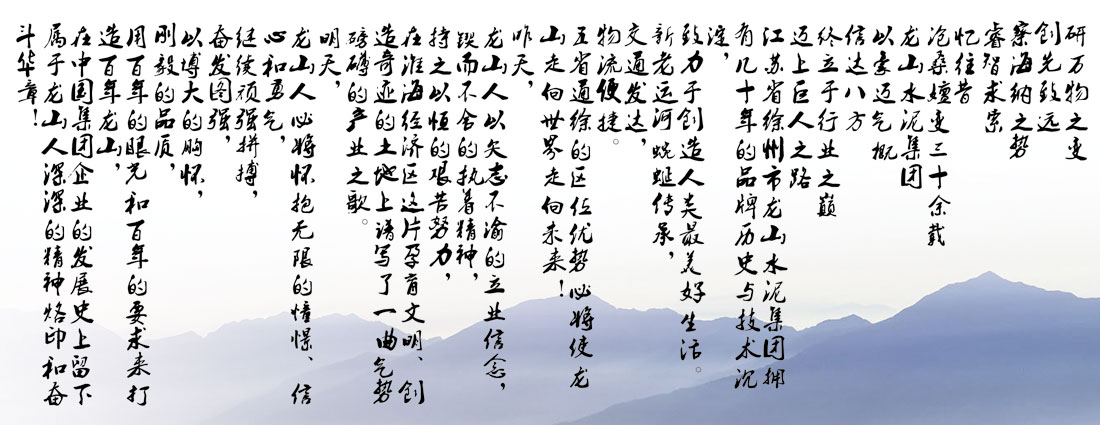 研万物之变
创先致远
察海纳之势
睿智求索
忆往昔
沧桑嬗变三十余载
龙山水泥集团
以豪迈气概
信达八方
终立于行业之巅
迈上巨人之路
江苏省徐州市龙山水泥集团拥
有几十年的品牌历史与技术沉
淀，
致力于创造人类最美好生活。
新老运河蜿蜒传承，
交通发达，
物流便捷。
五省通徐的区位优势必将使龙
山走向世界走向未来！
昨天，
龙山人以矢志不渝的立业信念，
锲而不舍的执着精神，
持之以恒的艰苦努力，
在淮海经济区这片孕育文明、创
造奇迹的土地上谱写了一曲气势
磅礴的产业之歌。
明天，
龙山人必将怀抱无限的憧憬、信
心和勇气，
继续顽强拼搏，
奋发图强，
以博大的胸怀，
刚毅的品质，
用百年的眼光和百年的要求来打
造百年龙山，
在中国集团企业的发展史上留下
属于龙山人深深的精神烙印和奋
斗华章！